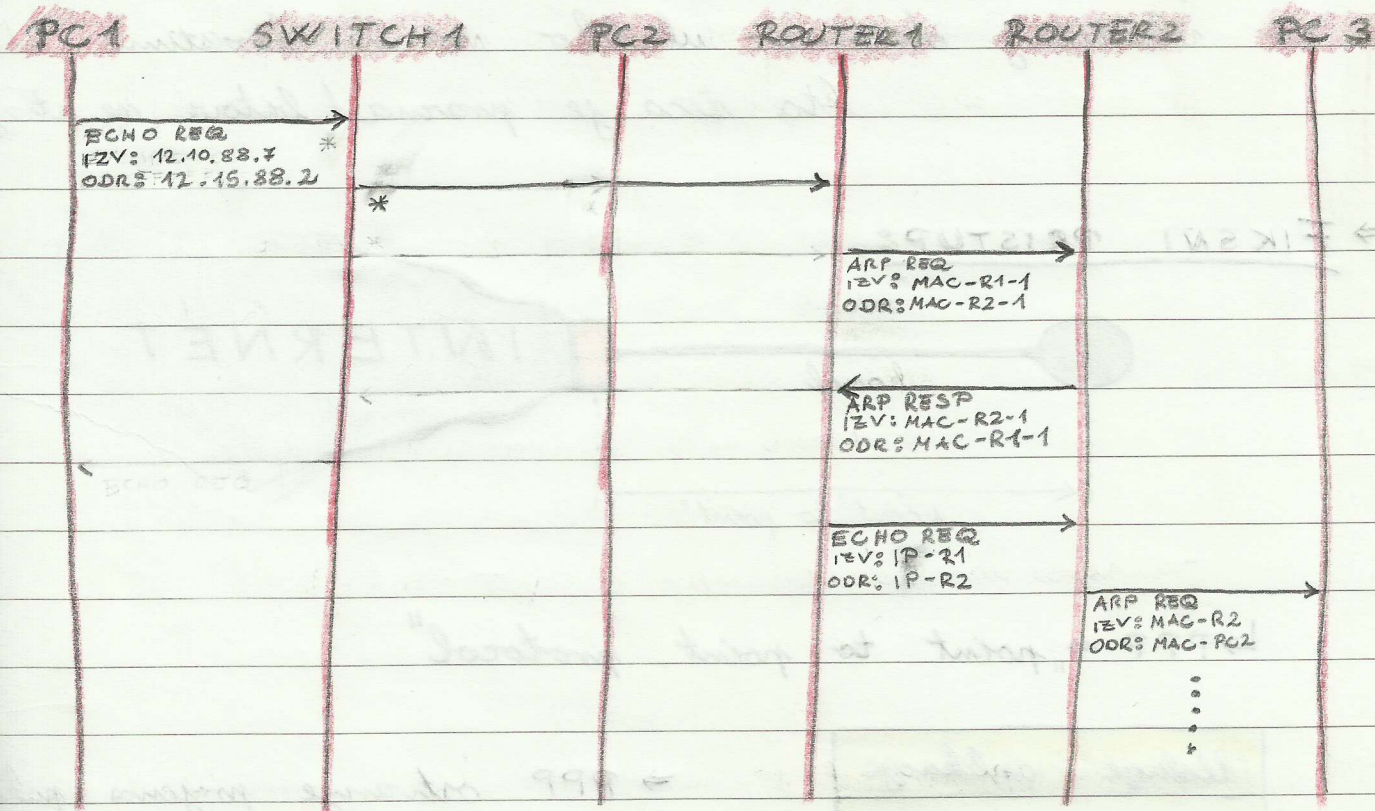 PC1 SWITCH1 PC2 ROUTER1 ROUTER2 PC 3
ECHO REQ
IZV: 12.10.88.7
ODR: 12.15.88.2
*
*
ARP REQ
IZV: MAC-R1-1
ODR: MAC-R2-1
ARP RESP
IZV: MAC-R2-1
ODR: MAC-R1-1
ECHO REQ
IZV: IP-R1
ODR: IP-R2
ARP REQ
IZV: MAC-R2
ODR: MAC-PC2